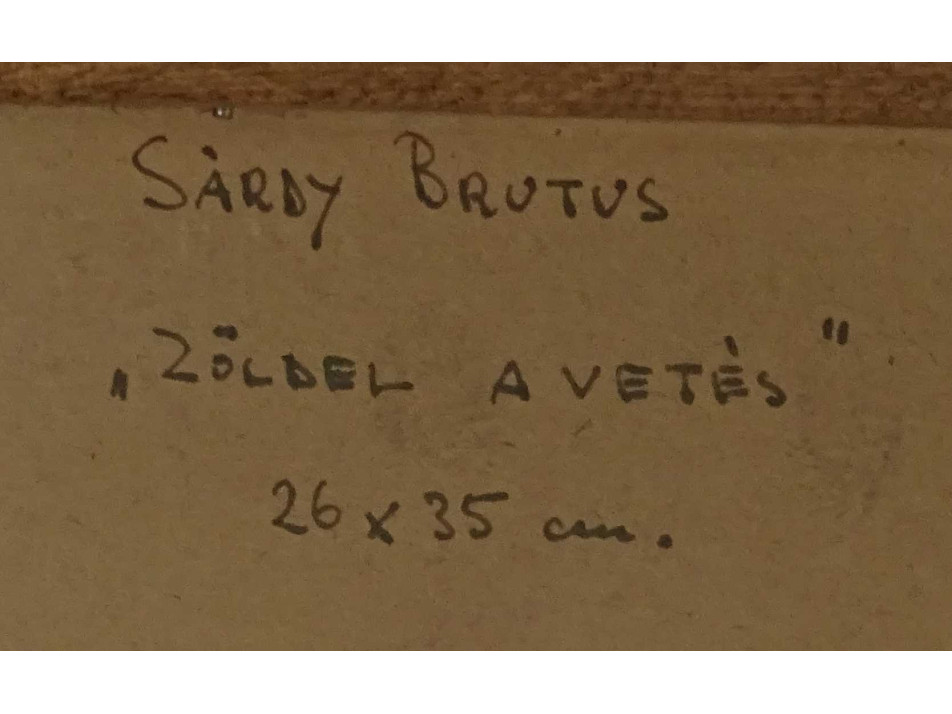 SÁRDY BRUTUS
„ZÖLDEL A VETÉS”
26 x 35 cm.